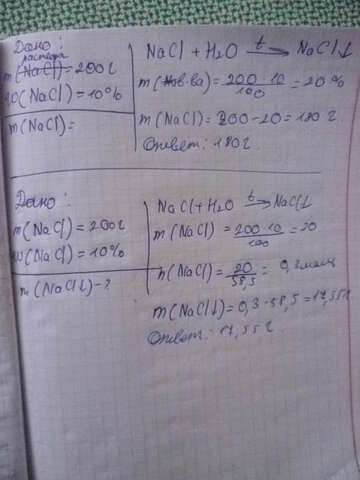 Дано:
раствора
m(NaCl)=200г
ω(NaCl)=10%
m(NaCl)=
NaCl+H2O t→ NaCl↓
m(в-ва)=200·10/100=20%
m(NaCl)=200-20=180г
Ответ: 180г.
Дано:
m(NaCl)=200г
ω(NaCl)=10%
m(NaCl↓)-?
NaCl+H2O t→ NaCl↓
m(NaCl)=200·10/100=20
n(NaCl)=20/58,5=0,3моль
m(NaCl↓)=0,3·58,5=17,55г
Ответ: 17,55г.